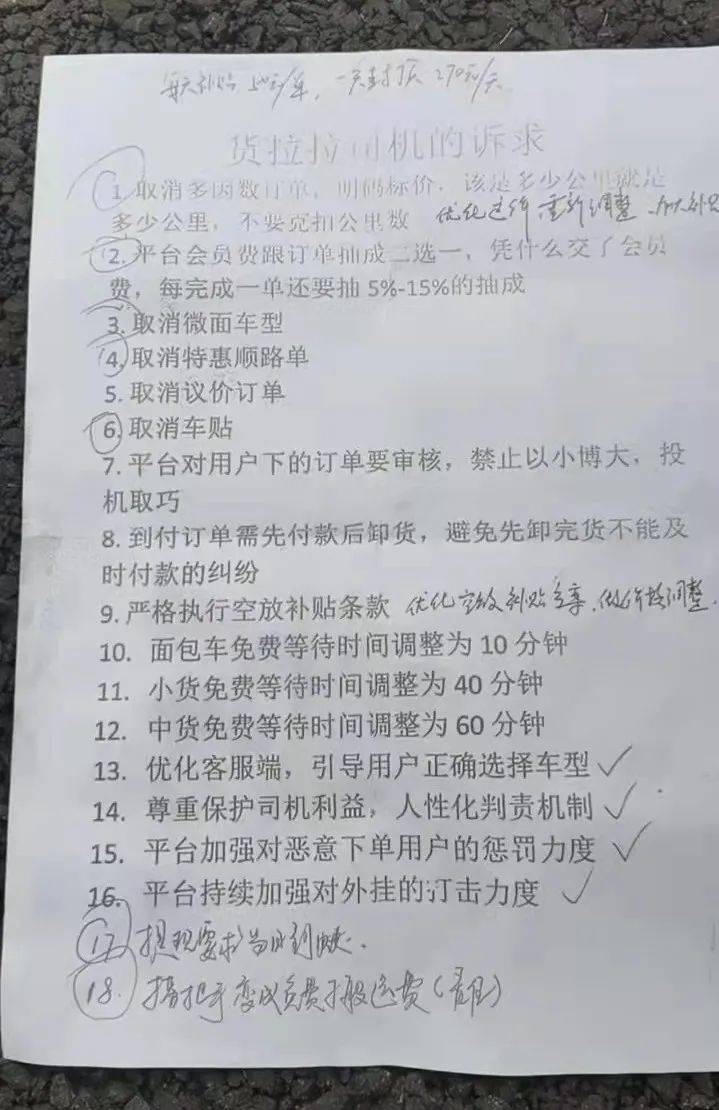 每天补贴50元/单，一天封顶270元/天
货拉拉司机的诉求
1. 取消多因数订单，明码标价，该是多少公里就是
多少公里，不要克扣公里数 优化过的 重新调整
2. 平台会员费跟订单抽成二选一，凭什么交了会员
费，每完成一单还要抽 5%-15%的抽成
3. 取消微面车型
4. 取消特惠顺路单
5. 取消议价订单
6. 取消车贴
7. 平台对用户下的订单要审核，禁止以小博大，投
机取巧
8. 到付订单需先付款后卸货，避免先卸完货不能及
时付款的纠纷
9. 严格执行空放补贴条款 优化空放补贴 调整
10. 面包车免费等待时间调整为 10 分钟
11. 小货免费等待时间调整为 40 分钟
12. 中货免费等待时间调整为 60 分钟
13. 优化客服端，引导用户正确选择车型✓
14. 尊重保护司机利益，人性化判责机制✓
15. 平台加强对恶意下单用户的惩罚力度✓
16. 平台持续加强对外挂的打击力度✓
17. 提现要求当日到账.
18. 搭把手变成免费搬运费